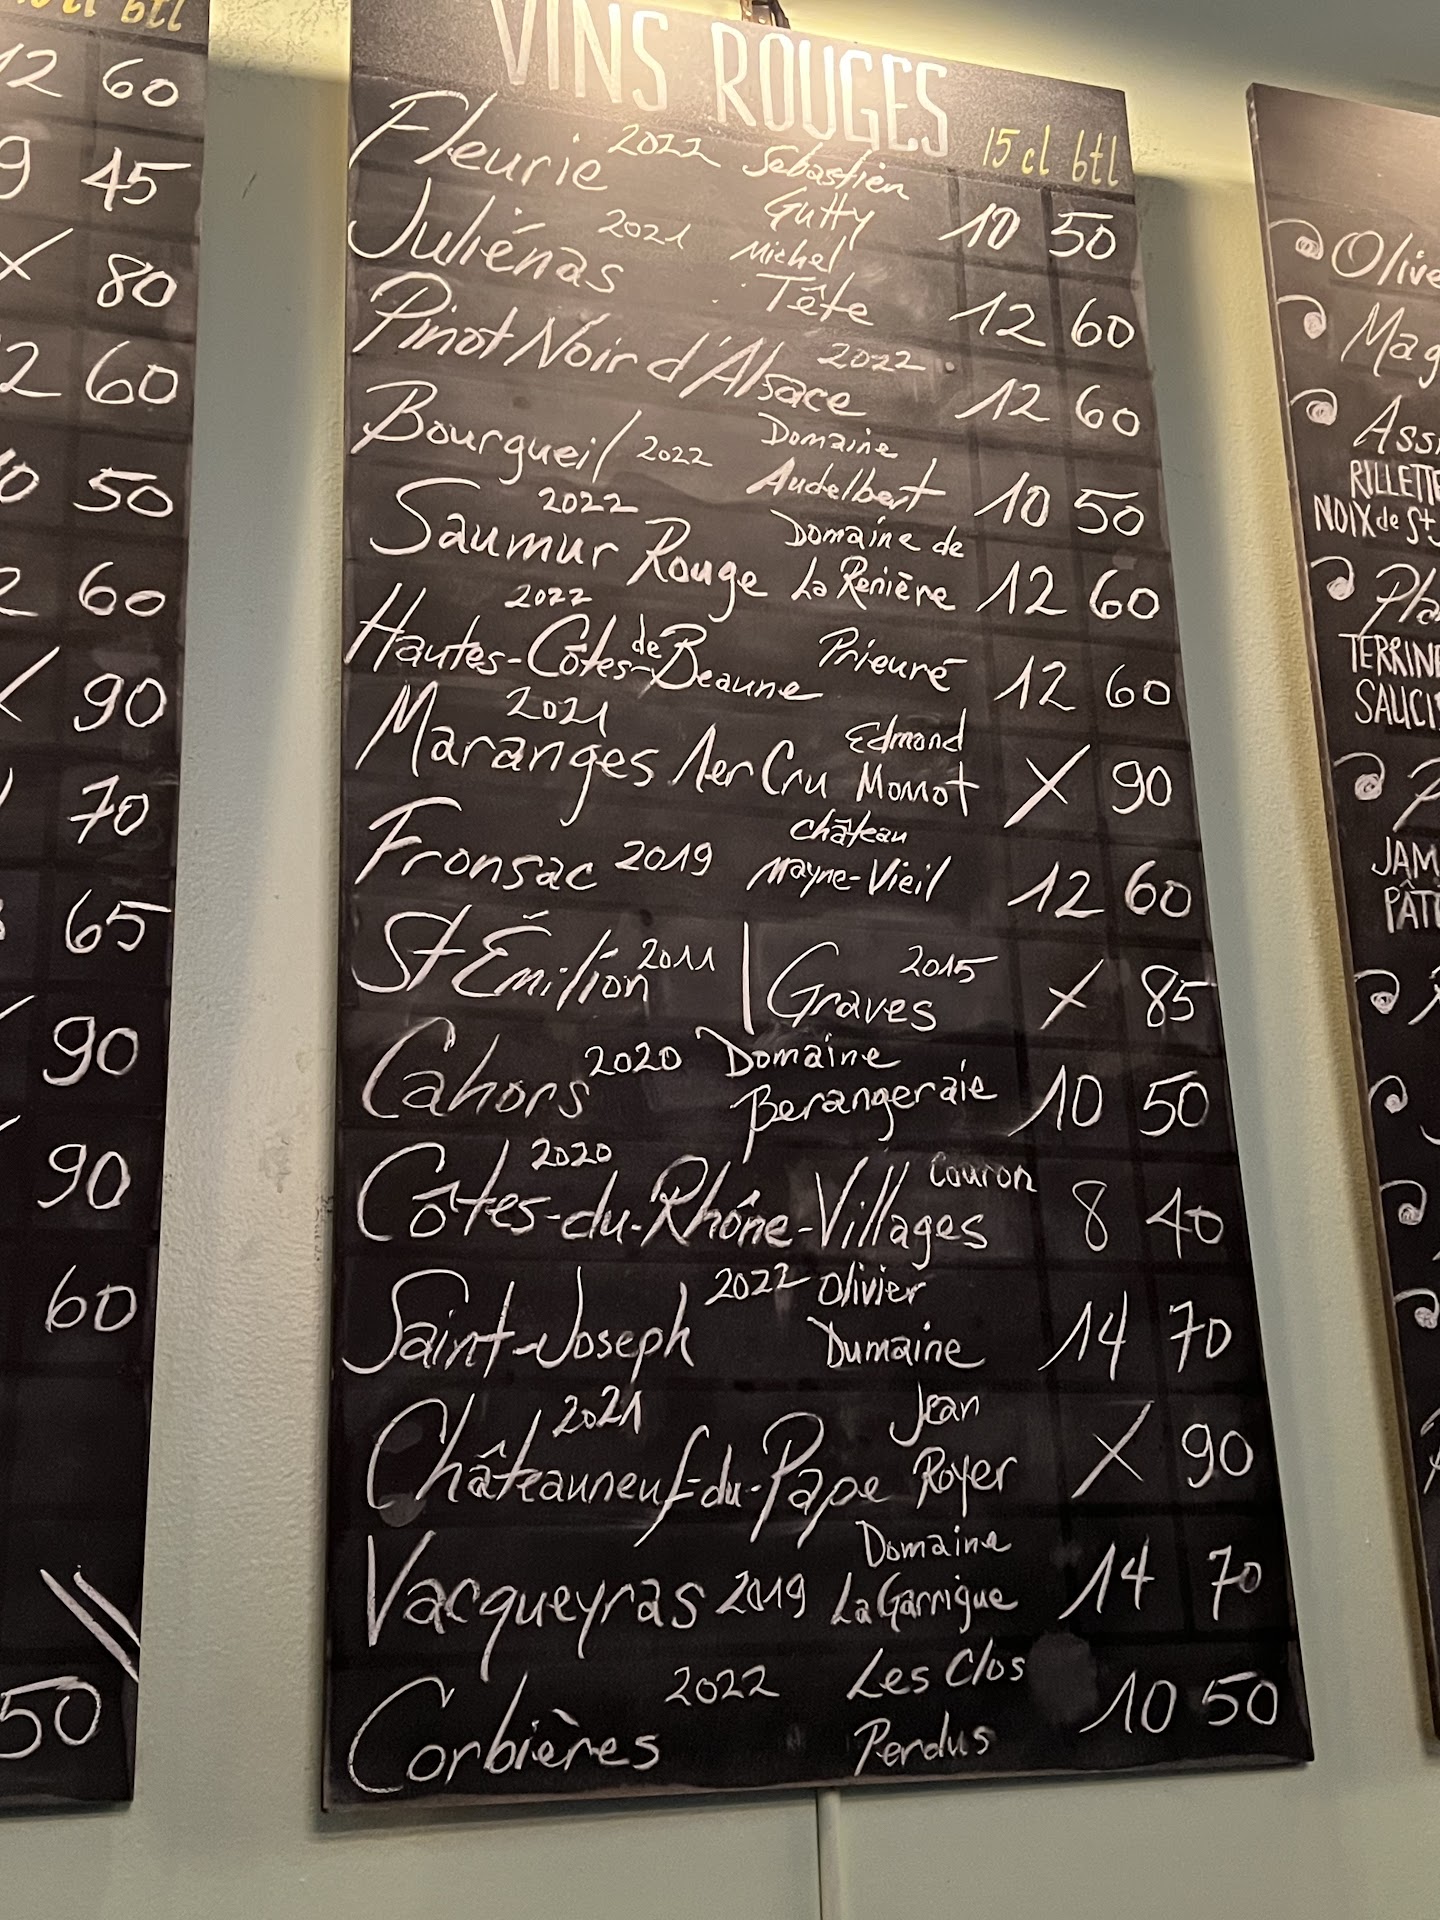 btl
12 60
9 45
X 80
12 60
10 50
60
X 90
70
65
90
90
60
50
VINS ROUGES 15 cl btl
Fleurie 2022 Sébastien Gutty 10 50
Juliénas 2021 Michel Tête 12 60
Pinot Noir d'Alsace 2022 12 60
Bourgueil 2022 Domaine Audelbert 10 50
Saumur Rouge 2022 Domaine de La Renière 12 60
Hautes-Côtes-de-Beaune 2022 Prieuré 12 60
Maranges 1er Cru 2021 Edmond Monnot X 90
Fronsac 2019 Château Mayne-Vieil 12 60
St Émilion 2011 | Graves 2015 X 85
Cahors 2020 Domaine Berangeraie 10 50
Côtes-du-Rhône-Villages 2020 Couron 8 40
Saint-Joseph 2022 Olivier Dumaine 14 70
Châteauneuf-du-Pape 2021 Jean Royer X 90
Vacqueyras 2019 Domaine La Garrigue 14 70
Corbières 2022 Les Clos Perdus 10 50
Olive
Mag
Ass
RILLETTE
NOIX de St
Pla
TERRINE
SAUCIS
P
JAM
PÂT